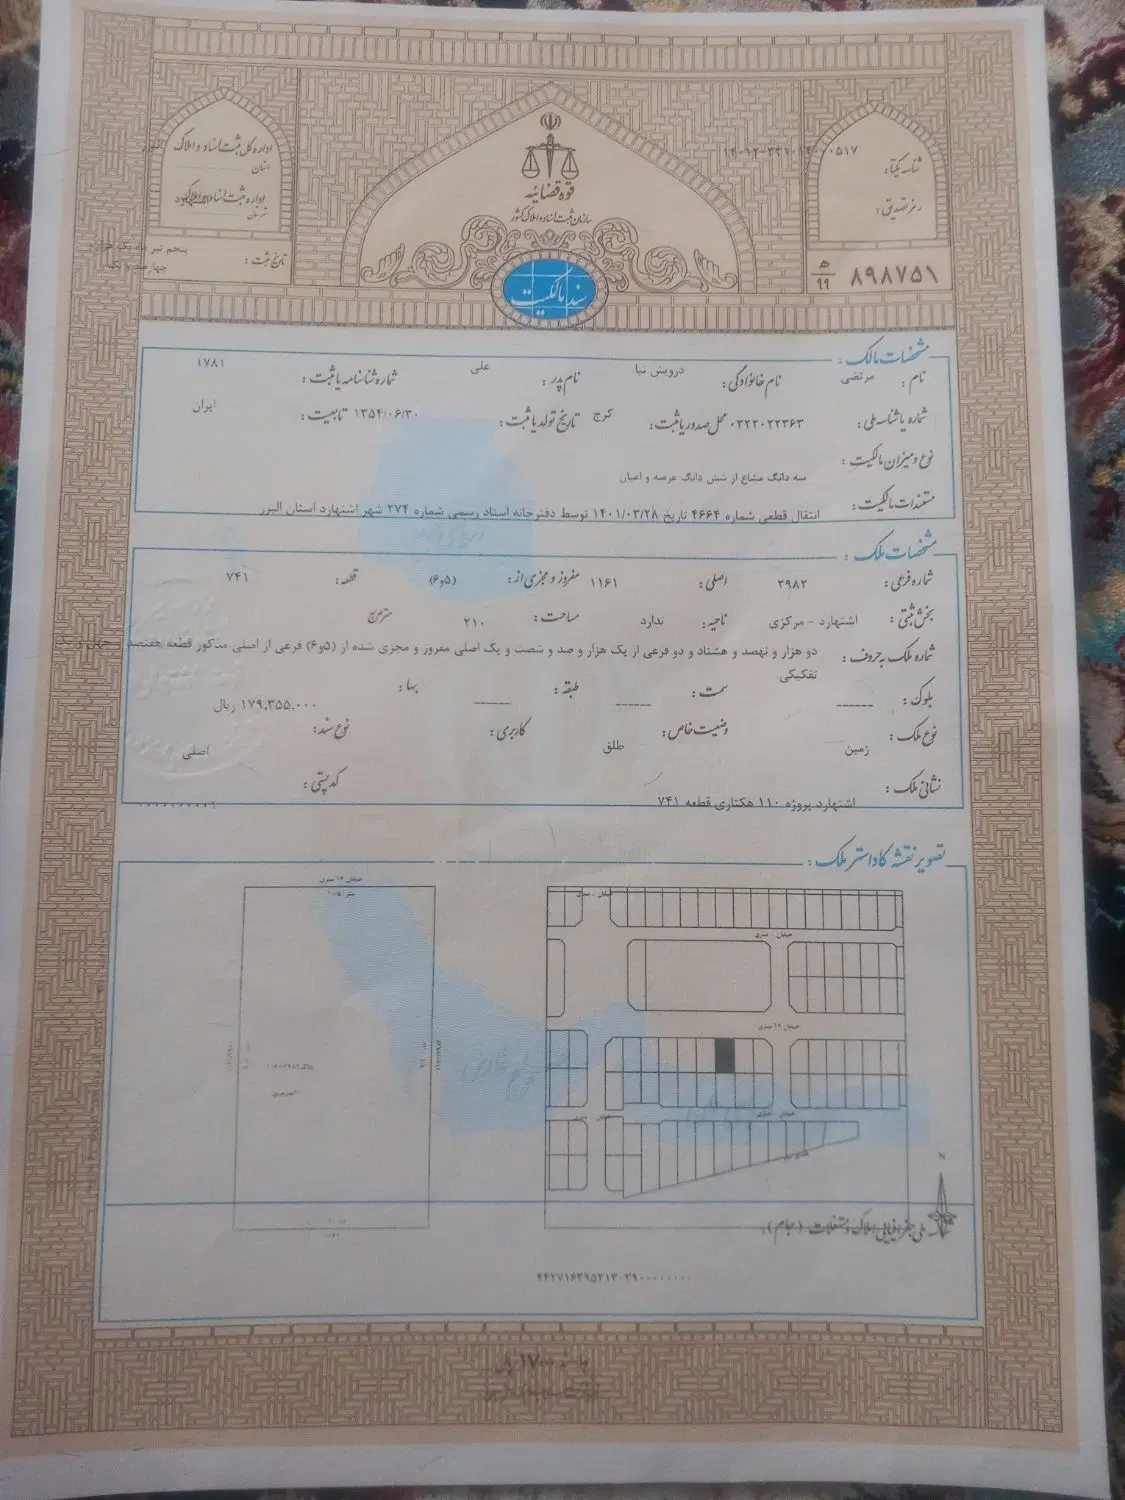 اداره کل ثبت اسناد و املاک
استان
اداره ثبت اسناد و املاک
شهرستان
تاریخ ثبت :
پنجم تیر ماه یک هزار و
چهارصد و یک
قوه قضائیه
سازمان ثبت اسناد و املاک کشور
سند مالکیت
شناسه یکتا :
رمز تصدیق :
۵/۹۹ ۸۹۸۷۵۱
مشخصات مالک :
نام : مرتضی نام خانوادگی : درویش نیا نام پدر : علی شماره شناسنامه یا ثبت : ۱۷۸۱
شماره یا شناسه ملی : ۰۳۲۲۰۲۲۳۶۳ محل صدور یا ثبت : کرج تاریخ تولد یا ثبت : ۱۳۵۴/۰۶/۳۰ تابعیت : ایران
نوع و میزان مالکیت :
سه دانگ مشاع از شش دانگ عرصه و اعیان
مستندات مالکیت :
انتقال قطعی شماره ۴۶۶۴ تاریخ ۱۴۰۱/۰۳/۲۸ توسط دفترخانه اسناد رسمی شماره ۲۷۴ شهر اشتهارد استان البرز
مشخصات ملک :
شماره فرعی : ۲۹۸۲ اصلی : ۱۱۶۱ مفروز و مجزی از : (۵و۶) قطعه : ۷۴۱
بخش ثبتی : اشتهارد - مرکزی ناحیه : ندارد مساحت : ۲۱۰ مترمربع
شماره ملک به حروف : دو هزار و نهصد و هشتاد و دو فرعی از یک هزار و صد و شصت و یک اصلی مفروز و مجزی شده از (۵و۶) فرعی از اصلی مذکور قطعه هفتصد و چهل و یک
تفکیکی
بلوک : ------ سمت : ------ طبقه : ------ بها : ۱۷۹,۳۵۵,۰۰۰ ریال
نوع ملک : زمین وضعیت خاص : طلق کاربری : نوع سند : اصلی
نشانی ملک : کد پستی :
اشتهارد پروژه ۱۱۰ هکتاری قطعه ۷۴۱
تصویر نقشه کاداستر ملک :
خیابان ۱۶ متری
خیابان - متری
خیابان - متری
خیابان ۱۶ متری
خیابان - متری
N
ملی جغرافیایی املاک و مستغلات (جام) :